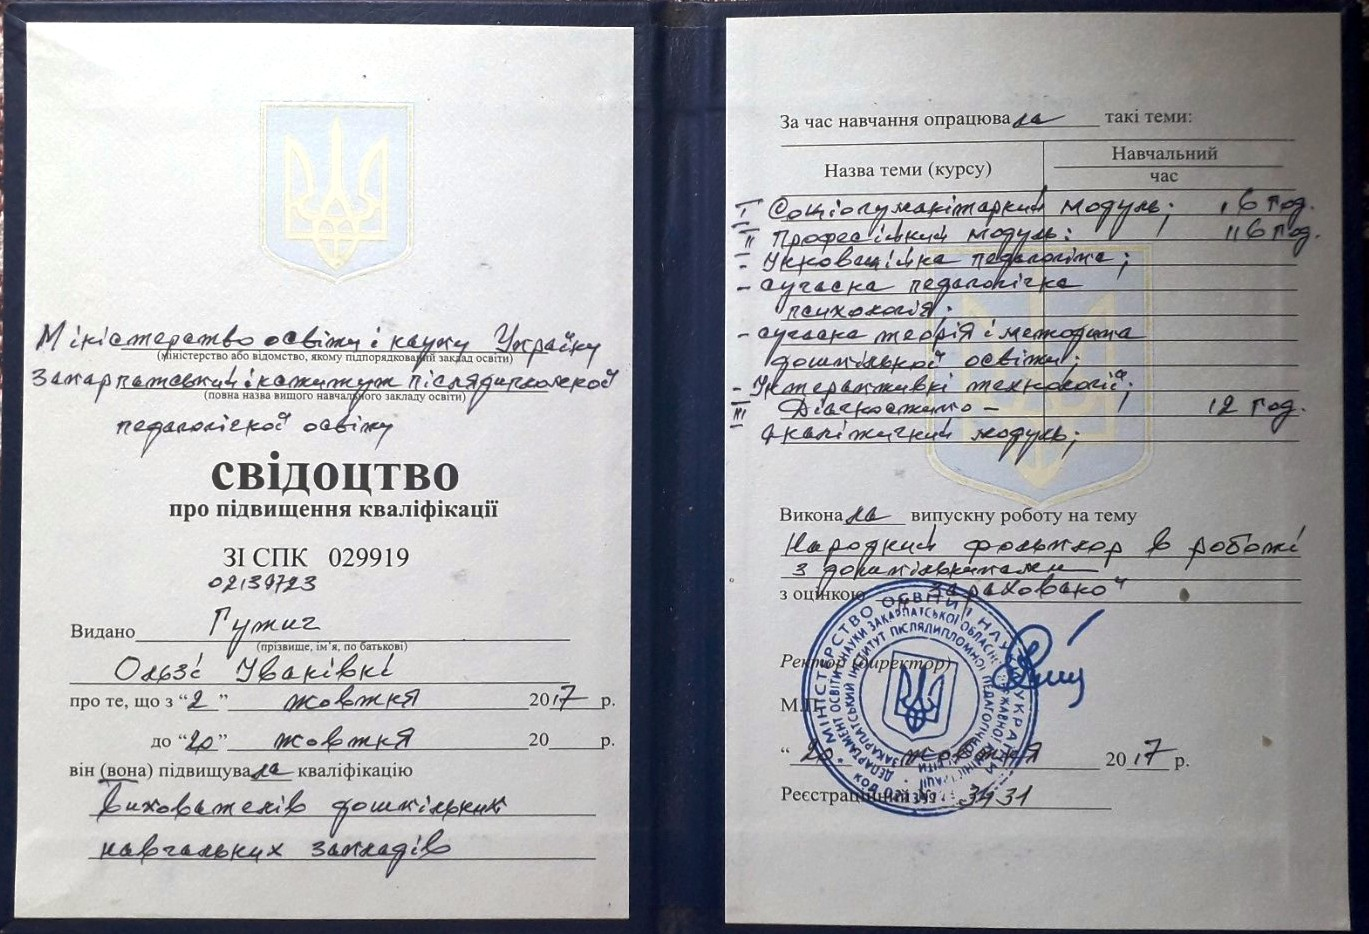 Міністерство освіти і науки України
(міністерство або відомство, якому підпорядкований заклад освіти)
Закарпатський інститут післядипломної
(повна назва вищого навчального закладу освіти)
педагогічної освіти
СВІДОЦТВО
про підвищення кваліфікації
ЗІ СПК 029919
02139723
Видано Гужич
(прізвище, ім'я, по батькові)
Ользі Іванівні
про те, що з “2” жовтня 2017 р.
до “20” жовтня 20 р.
він (вона) підвищувала кваліфікацію
вихователів дошкільних
навчальних закладів
За час навчання опрацювала такі теми:
Назва теми (курсу) Навчальний
час
I Соціогуманітарний модуль; 16 год.
II Професійний модуль: 116 год.
- Інноваційна педагогіка;
- сучасна педагогічна
психологія;
- сучасна теорія і методика
дошкільної освіти;
- Інтерактивні технології;
III Діагностично - 12 год.
аналітичний модуль;
Виконала випускну роботу на тему
Народний фольклор в роботі
з дошкільниками
з оцінкою „зараховано"
Ректор (директор)
М.П.
“20” жовтня 2017 р.
Реєстраційний № 3431
МІНІСТЕРСТВО ОСВІТИ І НАУКИ УКРАЇНИ
ДЕПАРТАМЕНТ ОСВІТИ І НАУКИ ЗАКАРПАТСЬКОЇ ОБЛАСНОЇ ДЕРЖАВНОЇ АДМІНІСТРАЦІЇ
ЗАКАРПАТСЬКИЙ ІНСТИТУТ ПІСЛЯДИПЛОМНОЇ ПЕДАГОГІЧНОЇ ОСВІТИ